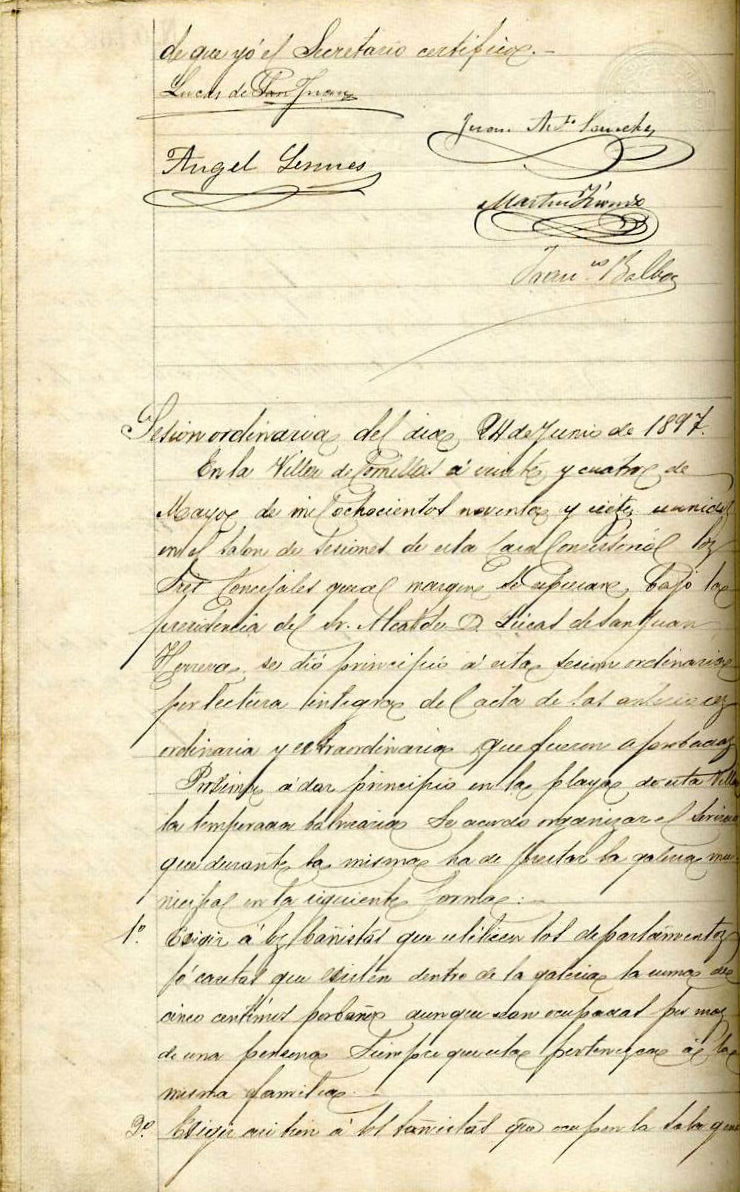 de que yó el Secretario certifico.-
Lucas de San Juan
Juan Anto Sanchez
Angel
Martin
Franco Balbos
Sesion ordinaria del dia 24 de Junio de 1897.
En la Villa de Comillas á veinte y cuatro de
Mayo de mil ochocientos noventa y siete, reunidos
en el salon de sesiones de esta Casa Consistorial los
Sres Concejales que al margen se espresan, bajo la
presidencia del Sr. Alcalde D. Lúcas de San Juan
Herrera, se dió principio á esta sesion ordinaria
por lectura integra del acta de las anteriores
ordinaria y extraordinaria, que fueron aprobadas
Proxima á dar principio en la playa de esta Villa
la temporada balnearia se acordo organizar el servicio
que durante la misma ha de prestar la galeria mu-
nicipal en la siguiente forma:-
1º Exigir á los bañistas que utilicen los departamentos
ó casetas que existen dentro de la galeria la suma de
cinco centimos por baño aunque sean ocupadas por mas
de una persona siempre que estas pertenezcan á la
misma familia.-
2º Exigir asi bien á los bañistas que ocupen la sala gene